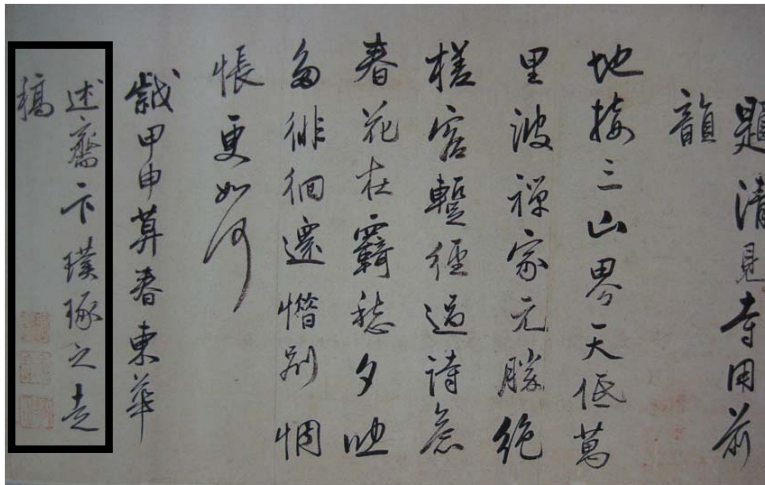 題清見寺用前
韻
地接三山界天低萬
里波禪家元勝絶
槎客蹔經過詩意
春花在羇愁夕吹
多徘徊還惜別惆
悵更如何
歲甲申暮春東華
述齋卞璞琢之走
稿